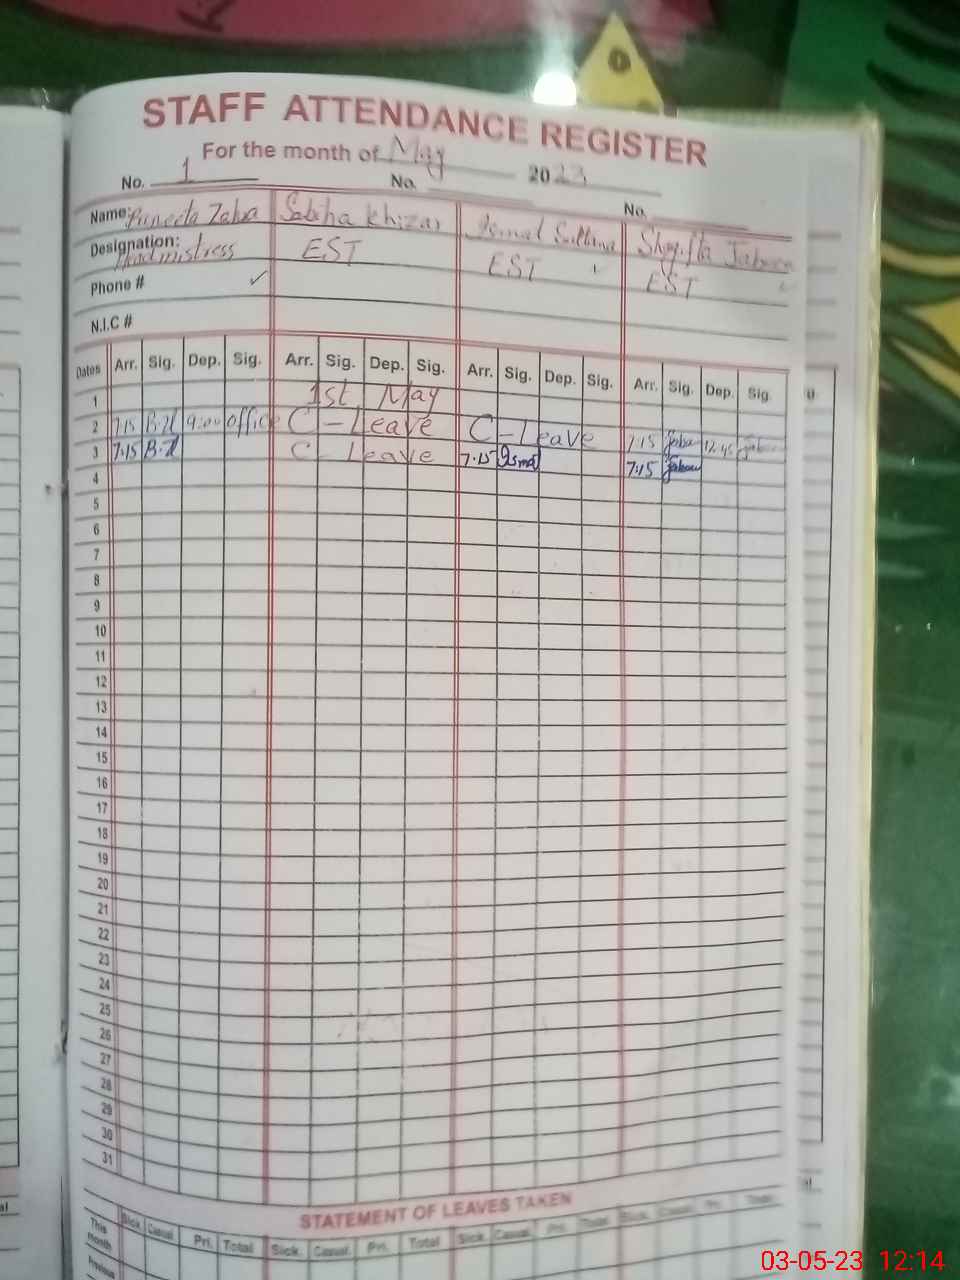 STAFF ATTENDANCE REGISTER
For the month of May 2023
No. 1 No. No.
Name: Zahra Sabiha Khizar Ismat Sultana Shagufta Jabeen
Designation: Headmistress EST EST EST
Phone #
N.I.C #
Dates Arr. Sig. Dep. Sig. Arr. Sig. Dep. Sig. Arr. Sig. Dep. Sig. Arr. Sig. Dep. Sig.
1 1st May
2 7:15 B.Z 9:00 office C-Leave C-Leave 7:15 12:45
3 7:15 B.Z C-Leave 7:15 Ismat 7:15
4
5
6
7
8
9
10
11
12
13
14
15
16
17
18
19
20
21
22
23
24
25
26
27
28
29
30
31
STATEMENT OF LEAVES TAKEN
This month Sick. Casual. Pri. Total Sick. Casual. Pri. Total Sick. Casual. Pri. Total Sick. Casual. Pri. Total
Previous
03-05-23 12:14